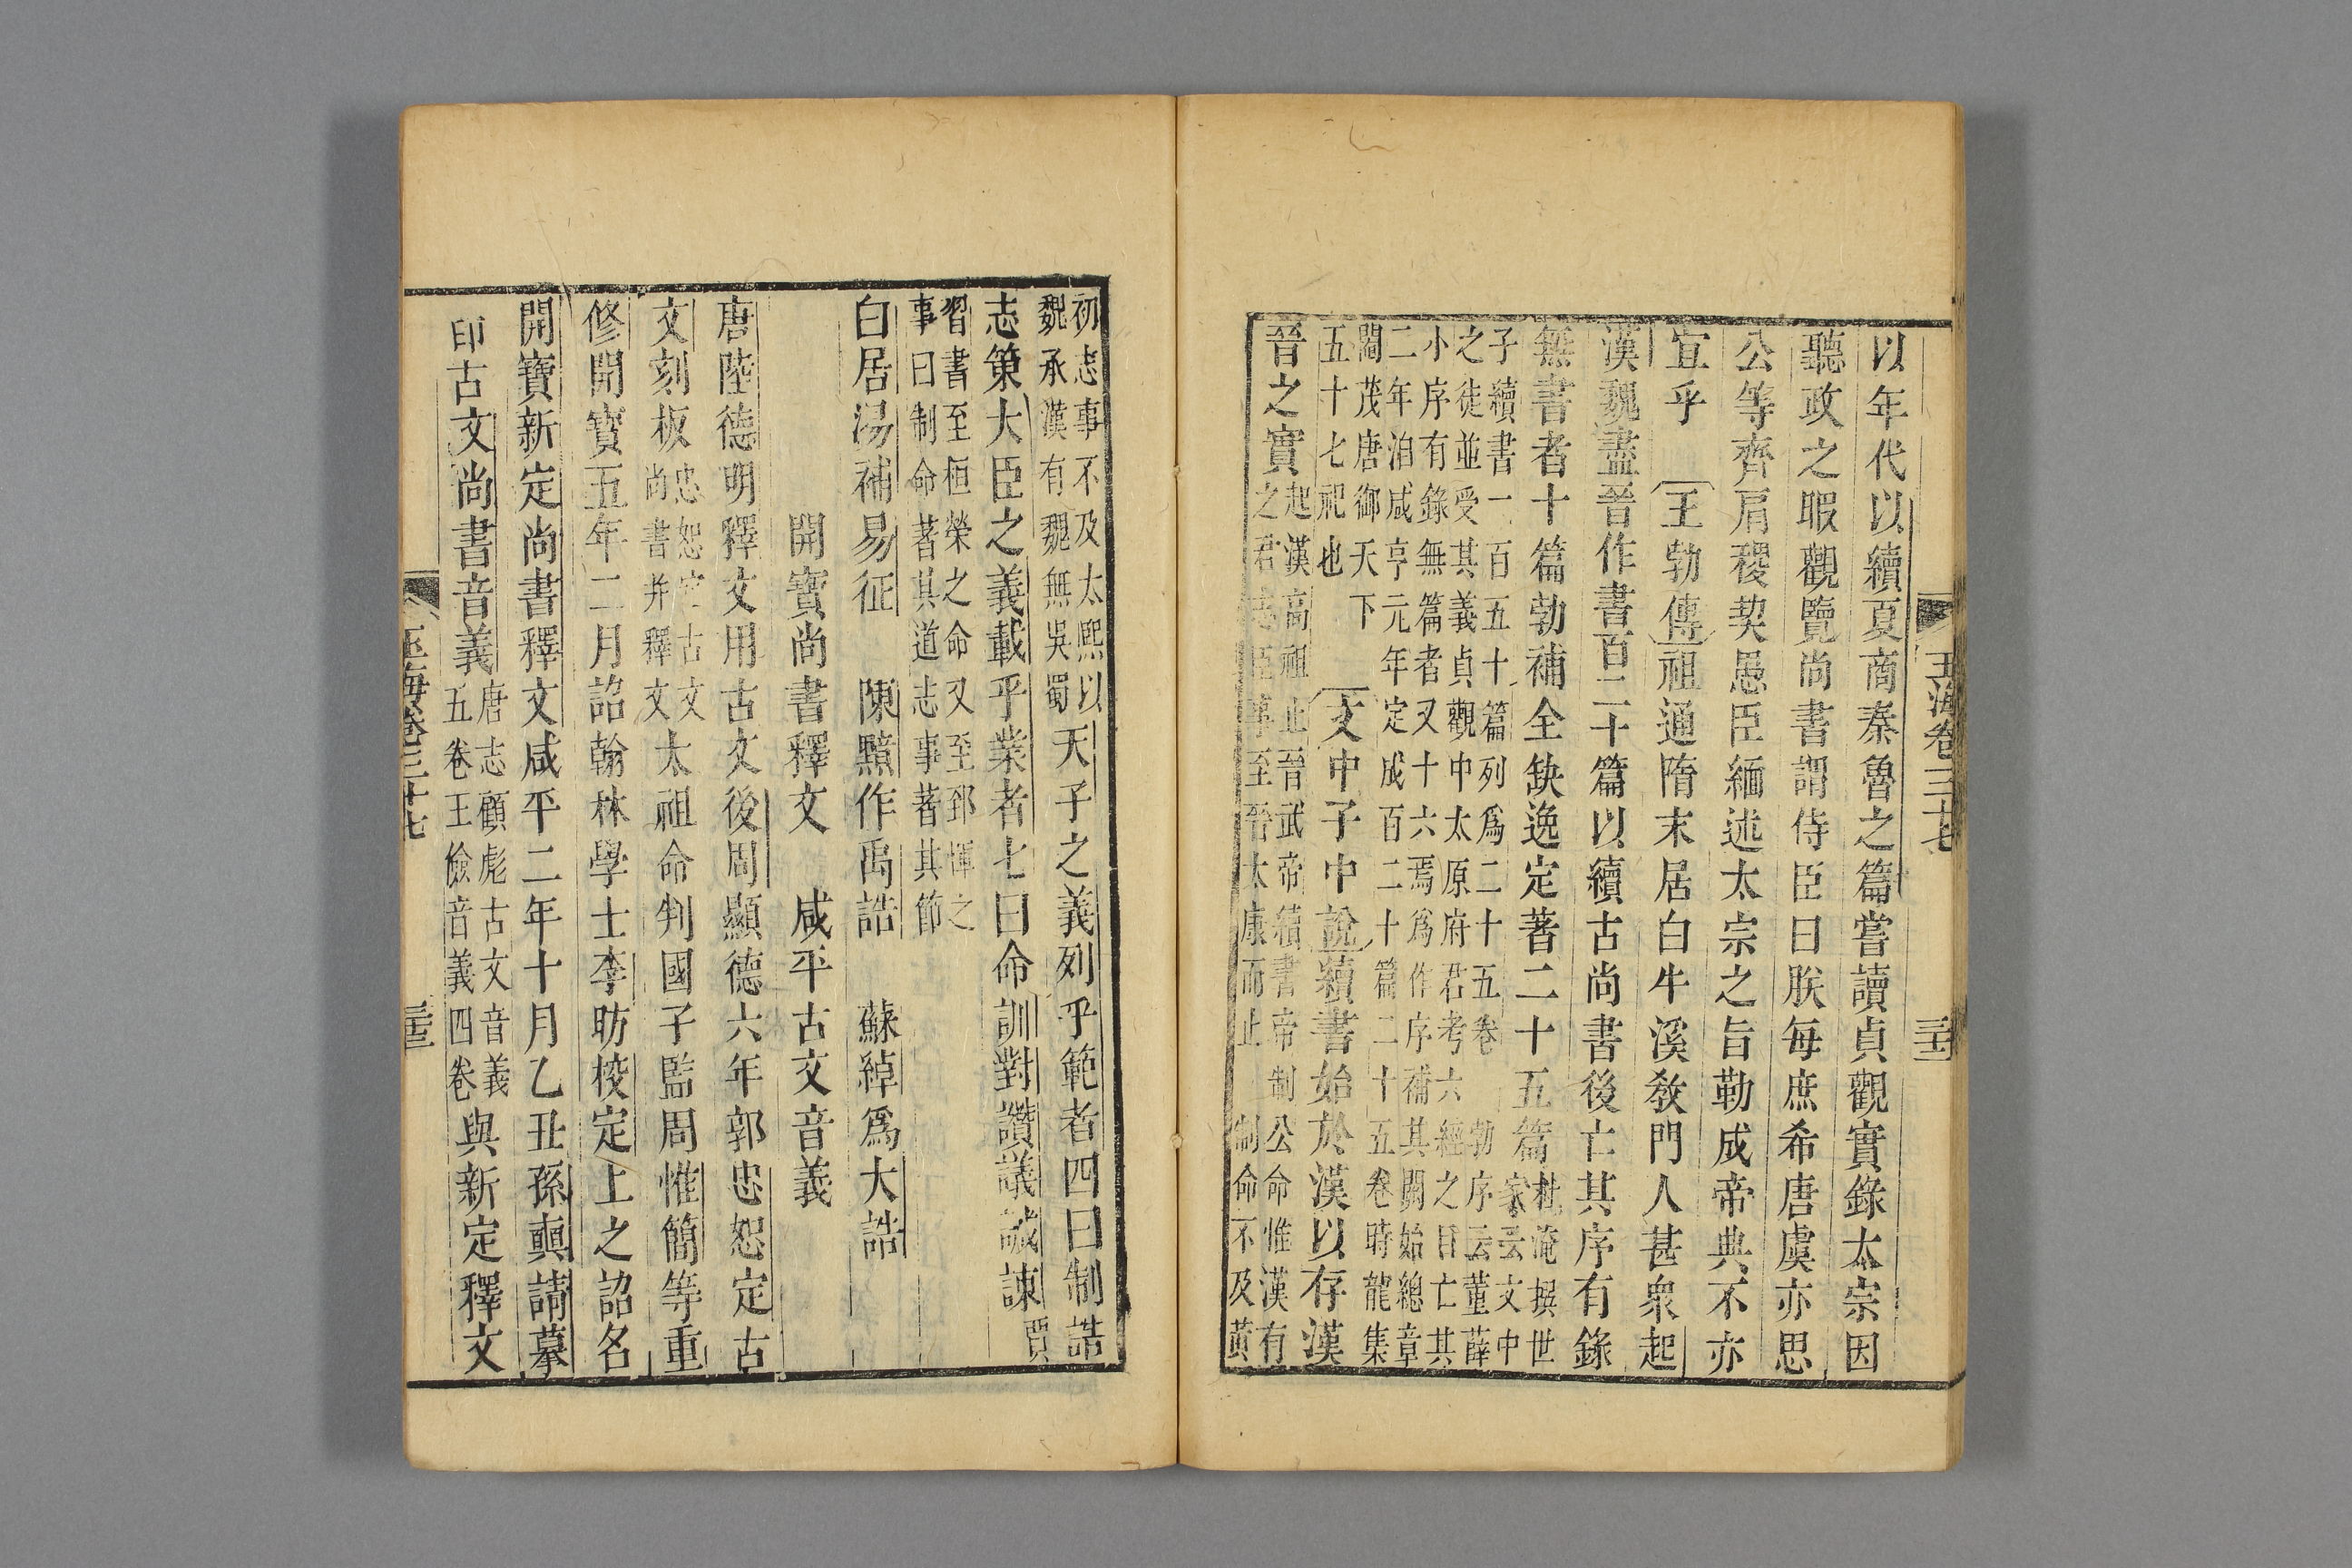 玉海卷三十七
以年代以續夏商秦魯之篇嘗讀貞觀實錄太宗因
聽政之暇觀覽尚書謂侍臣曰朕每庶希唐虞亦思
公等齊肩稷契愚臣緬述太宗之旨勒成帝典不亦
宜乎　王勃傳祖通隋末居白牛溪敎門人甚衆起
漢魏盡晉作書百二十篇以續古尚書後亡其序有錄
無書者十篇勃補全缺逸定著二十五篇
杜淹撰世
家云文中
子續書一百五十篇列爲二十五卷　勃序云董薛
之徒並受其義貞觀中太原府君考六經之目亡其
小序有錄無篇者又十六焉爲作序補其闕始總章
二年洎咸亨元年定成百二十篇二十五卷時龍集
閹茂唐御天下
五十七祀也
文中子中說續書始於漢以存漢
晉之實
起漢高祖止晉武帝續書帝制公命惟漢有
之君志臣事至晉太康而止　制命不及黃
初志事不及太熙以
魏承漢有魏無吳蜀
天子之義列乎範者四曰制誥
志策大臣之義載乎業者七曰命訓對讚議誡諫
賈
習書至桓榮之命又至郅惲之
事曰制命著其道志事著其節
白居湯補易征　陳黯作禹誥　蘇綽爲大誥
開寶尚書釋文　咸平古文音義
唐陸德明釋文用古文後周顯德六年郭忠恕定古
文刻板
忠恕定古文
尚書并釋文
太祖命判國子監周惟簡等重
修開寶五年二月詔翰林學士李昉校定上之詔名
開寶新定尚書釋文咸平二年十月乙丑孫奭請摹
印古文尚書音義
唐志顧彪古文音義
五卷王儉音義四卷
與新定釋文
玉海卷三十七